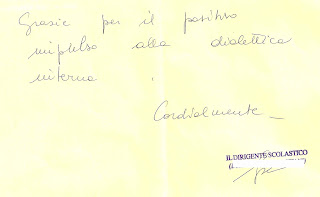 Grazie per il positivo
impulso alla dialettica
interna.
Cordialmente
IL DIRIGENTE SCOLASTICO